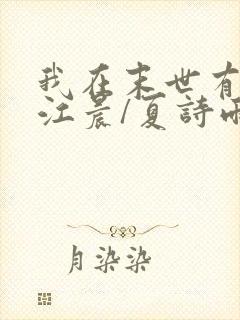 我在末世有
江晨/夏詩雨
月染染